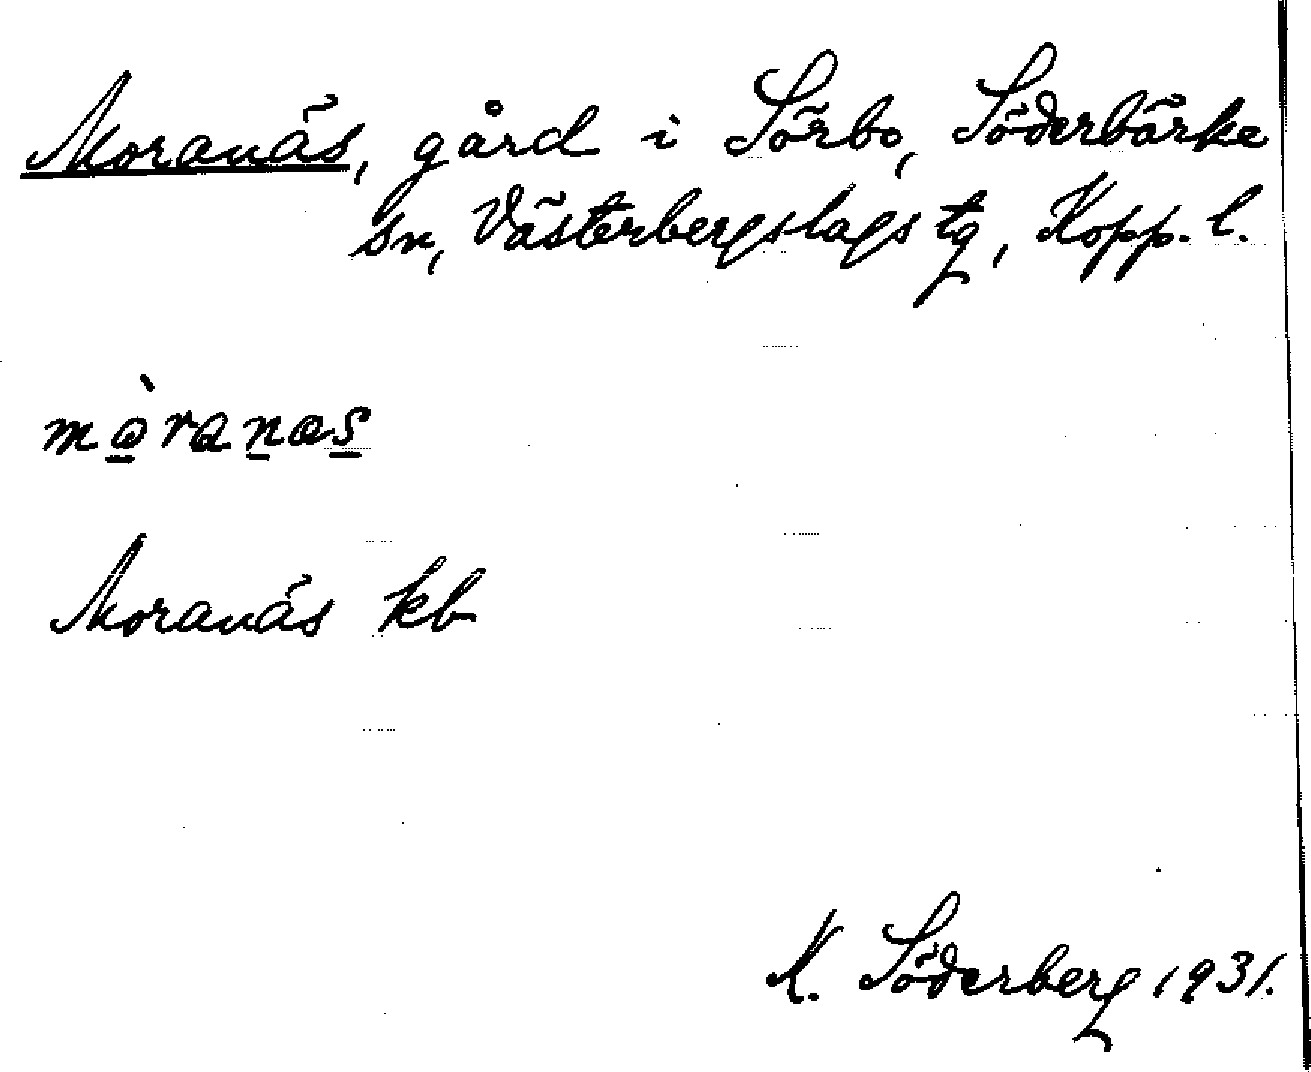 Moranäs, gård i Sörbo, Söderbärke
sn, Västerbergslags tg, Kopp. l.
mòranæs
Moranäs kb
K. Söderberg 1931.